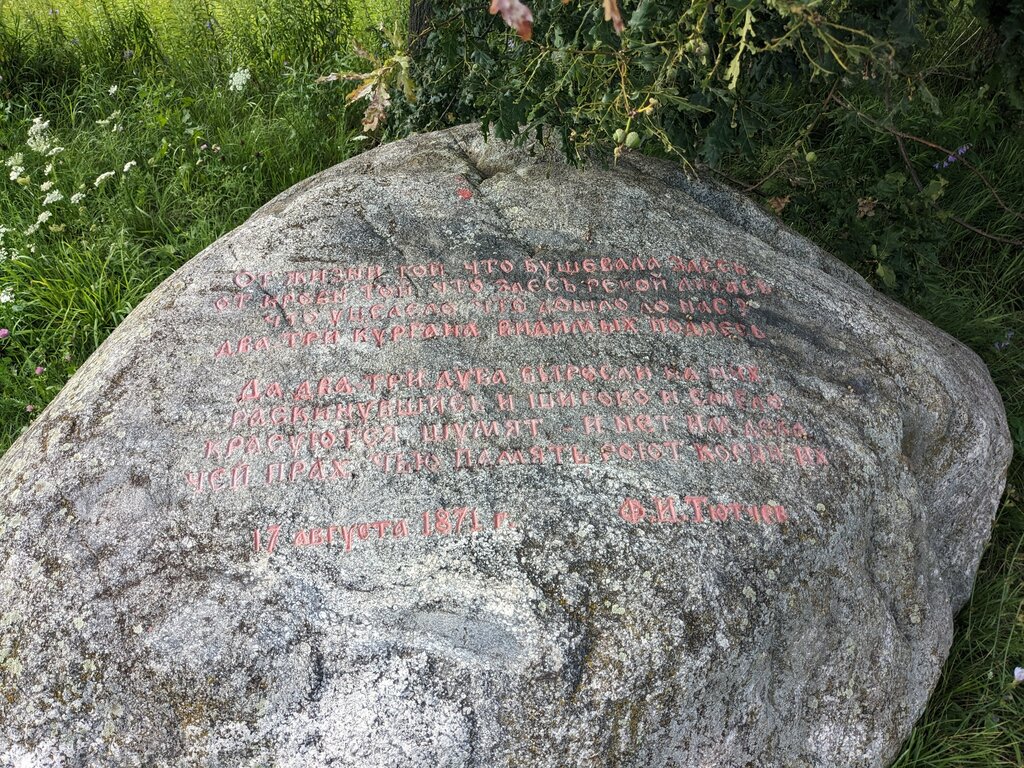 От жизни той, что бушевала здесь,
от крови той, что здесь рекой лилась,
что уцелело, что дошло до нас?
два-три кургана, видимых поднесь
Да два-три дуба выросли на них,
раскинувшись и широко и смело
красуются, шумят, - и нет им дела,
чей прах, чью память роют корни их
17 августа 1871 г. Ф.И.Тютчев